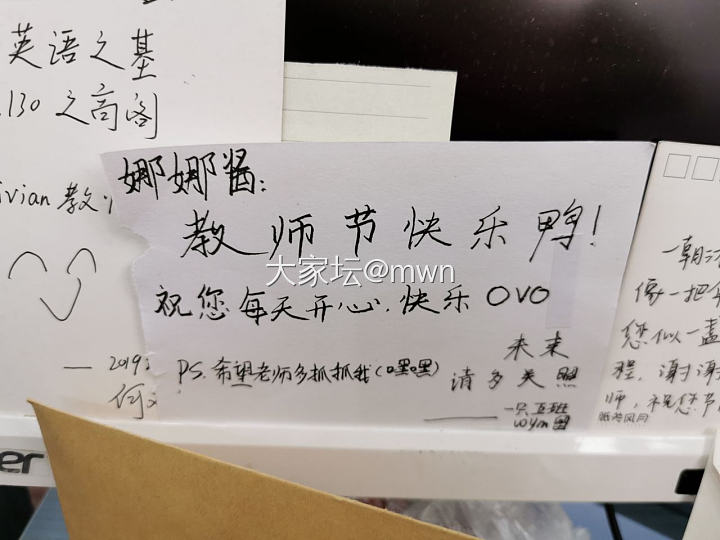 英语之基
130 之高阁
ivian 教
2019
何
娜娜酱:
教师节快乐鸭!
祝您每天开心,快乐 OVO
PS. 希望老师多抓抓我(嘿嘿)
未来
请多关照
——一只五班
大家坛@mwn
一朝
像一把
您似一盏
程,谢谢
师,祝您节
er